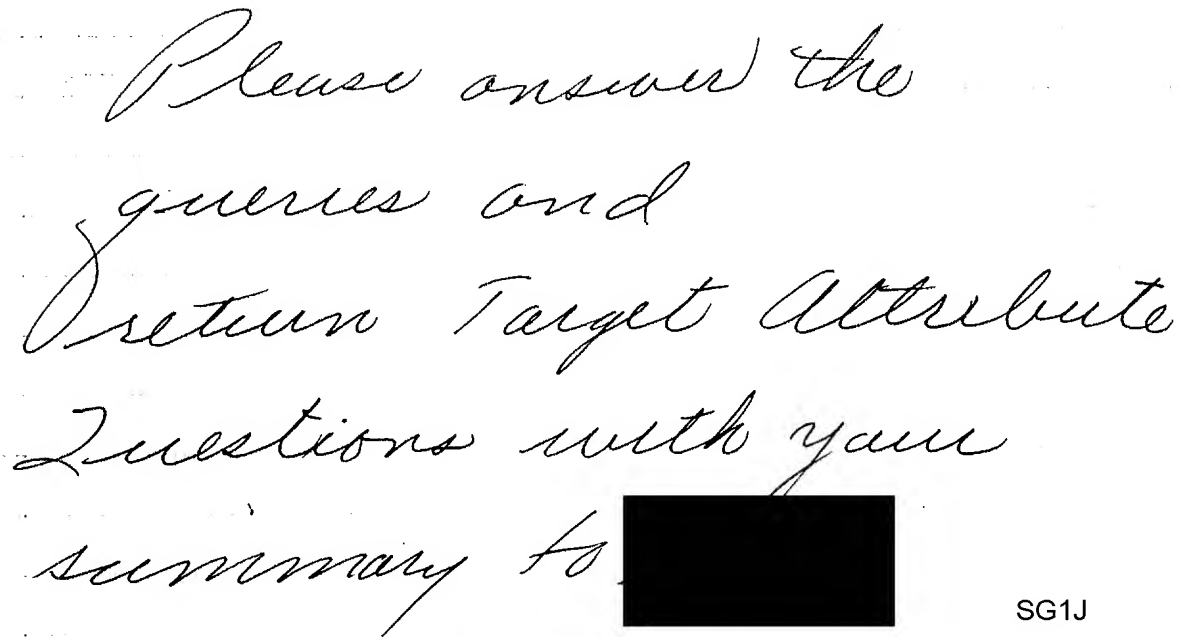 Please answer the
queries and
return Target Attribute
Questions with your
summary to
SG1J